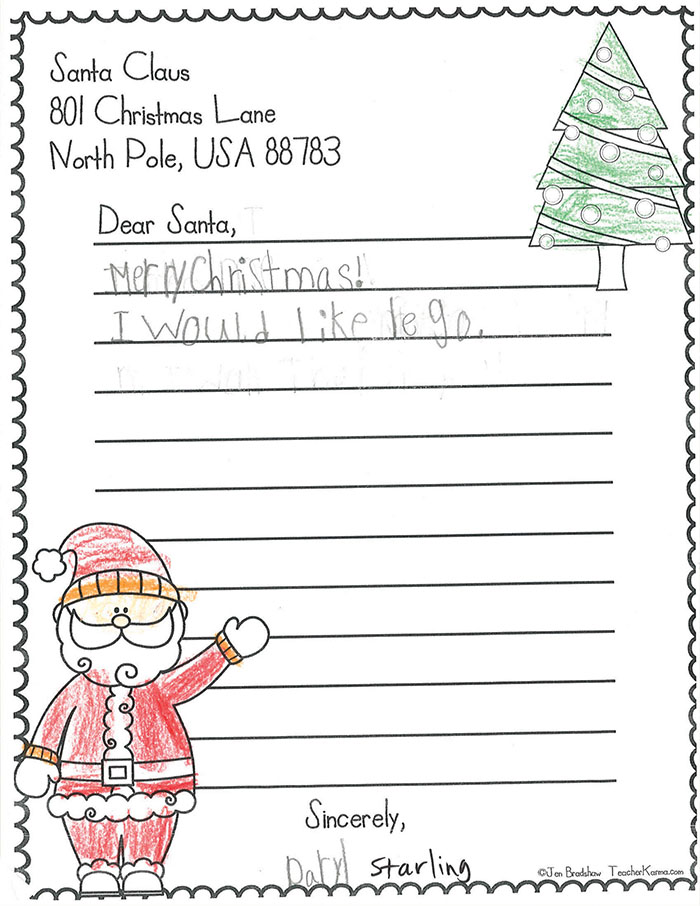 Santa Claus
801 Christmas Lane
North Pole, USA 88783
Dear Santa,
Merry Christmas!
I would like lego.
Sincerely,
Daryl Starling
©Jen Bradshaw TeacherKarma.com